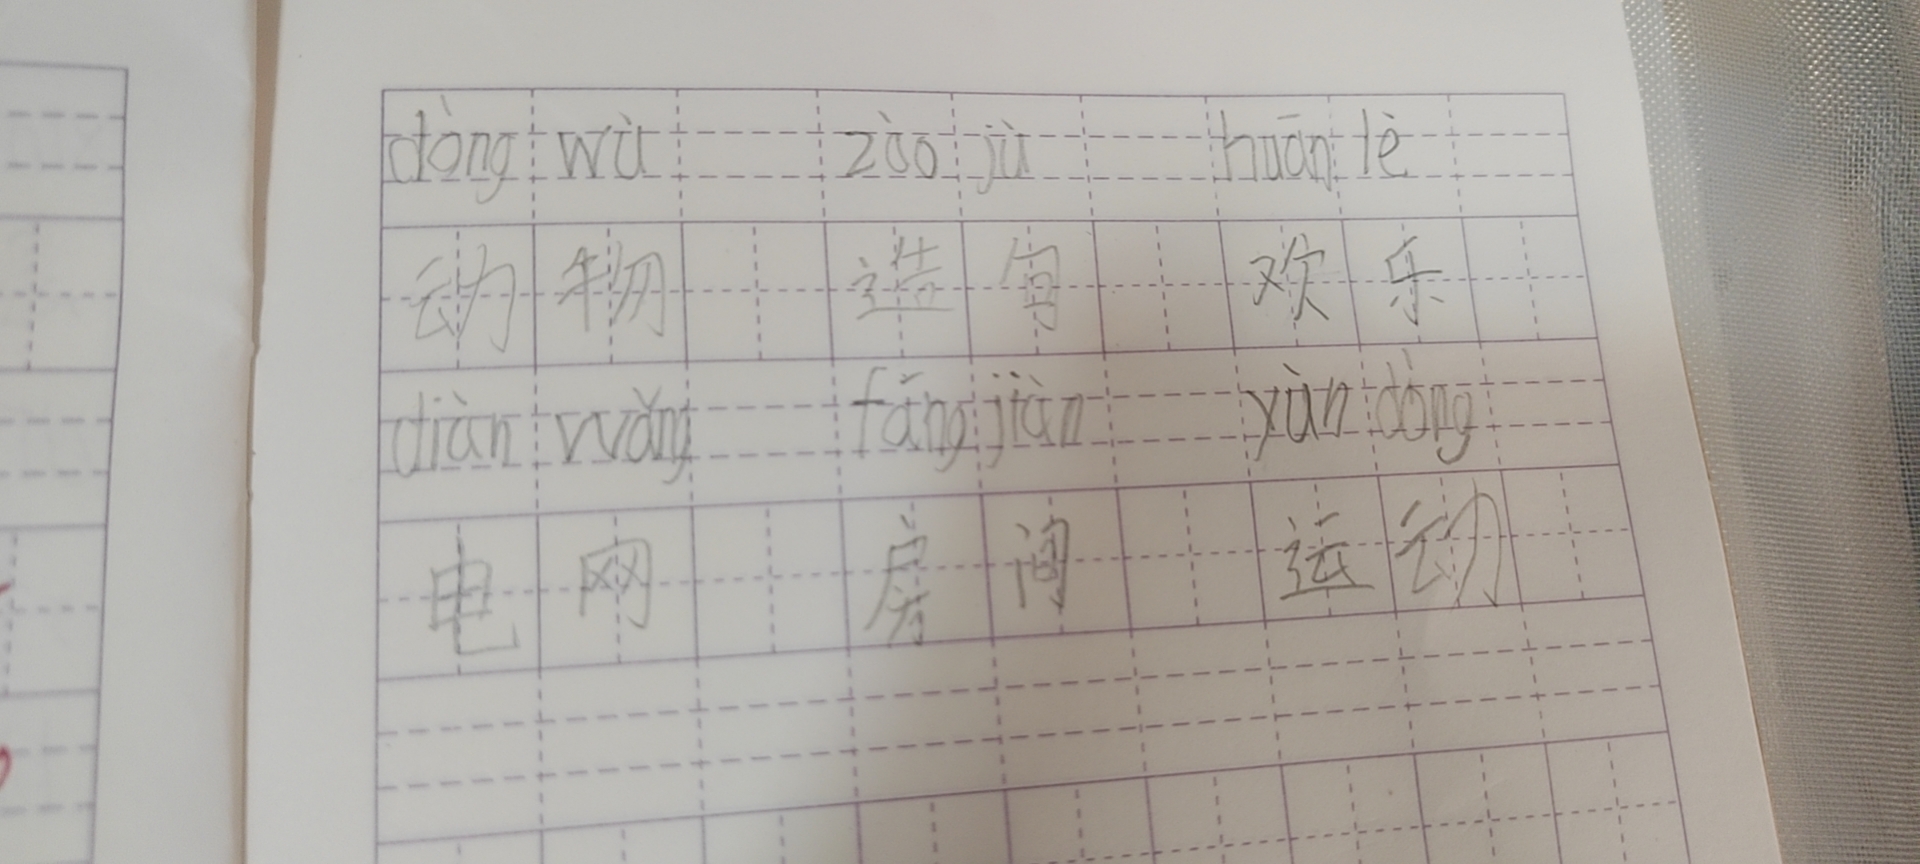 dòng wù zào jù huān lè
动物 造句 欢乐
diàn wǎng fáng jiàn yùn dòng
电网 房间 运动